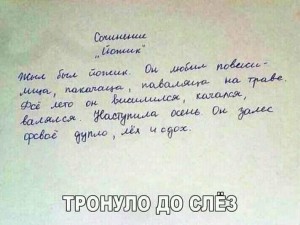 Сочинение
"Йожик"
Жыл был йожик. Он любил повеси-
лица, пакачаца, паваляца на траве.
Фсё лето он висилился, качался,
валялся. Наступила осень. Он залес
фсваё дупло, лёх и сдох.
ТРОНУЛО ДО СЛЁЗ